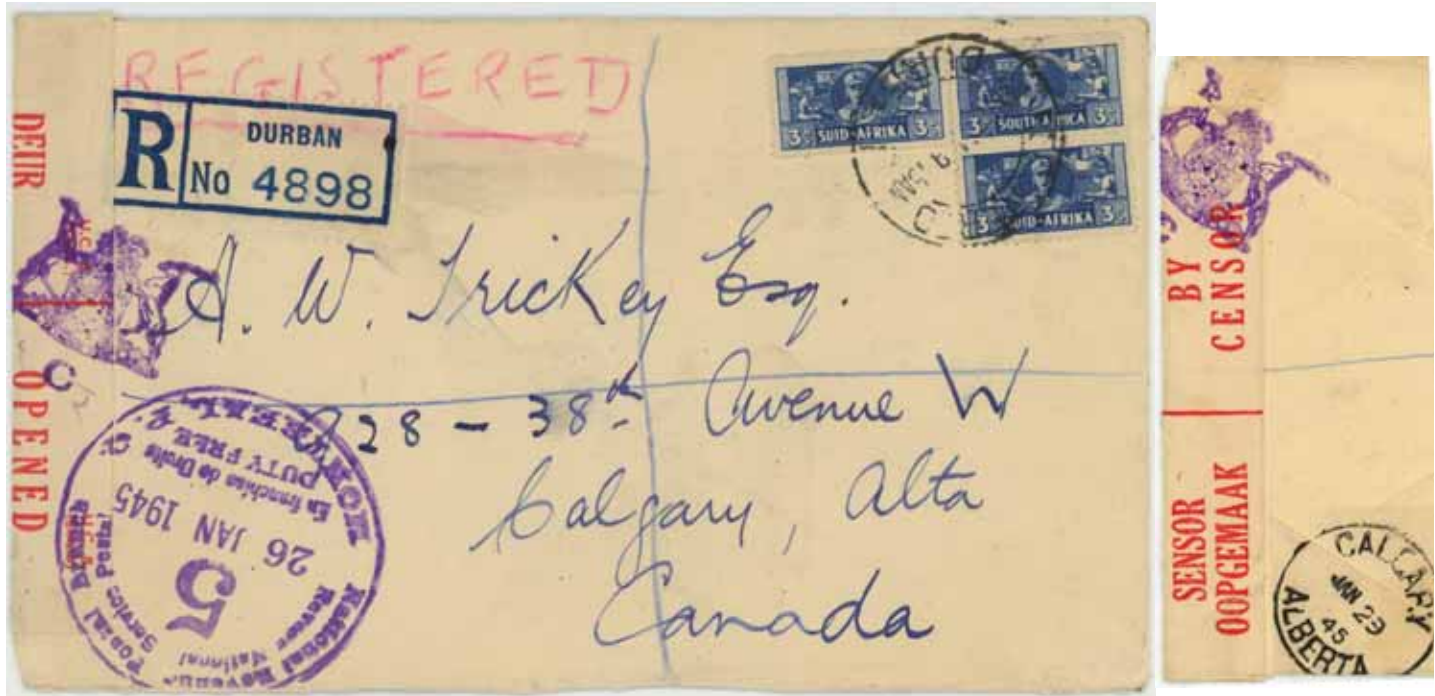 REGISTERED
R
DURBAN
No 4898
3D SUID-AFRIKA 3D
3D SOUTH AFRICA 3D
3D SUID-AFRIKA 3D
DEUR
OPENED
C
A. W. Trickey Esq.
728 - 38th Avenue W
Calgary, Alta
Canada
National Revenue
Postal Branch
Revenu National
Service Postal
5
26 JAN 1945
En franchise de Droits
DUTY FREE
MONTREAL, P.Q.
BY
CENSOR
SENSOR
OOPGEMAAK
CALGARY
JAN 29
45
ALBERTA